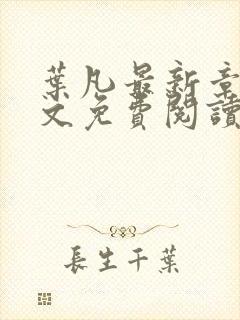 葉凡最新章
文免費閱讀
長生千葉